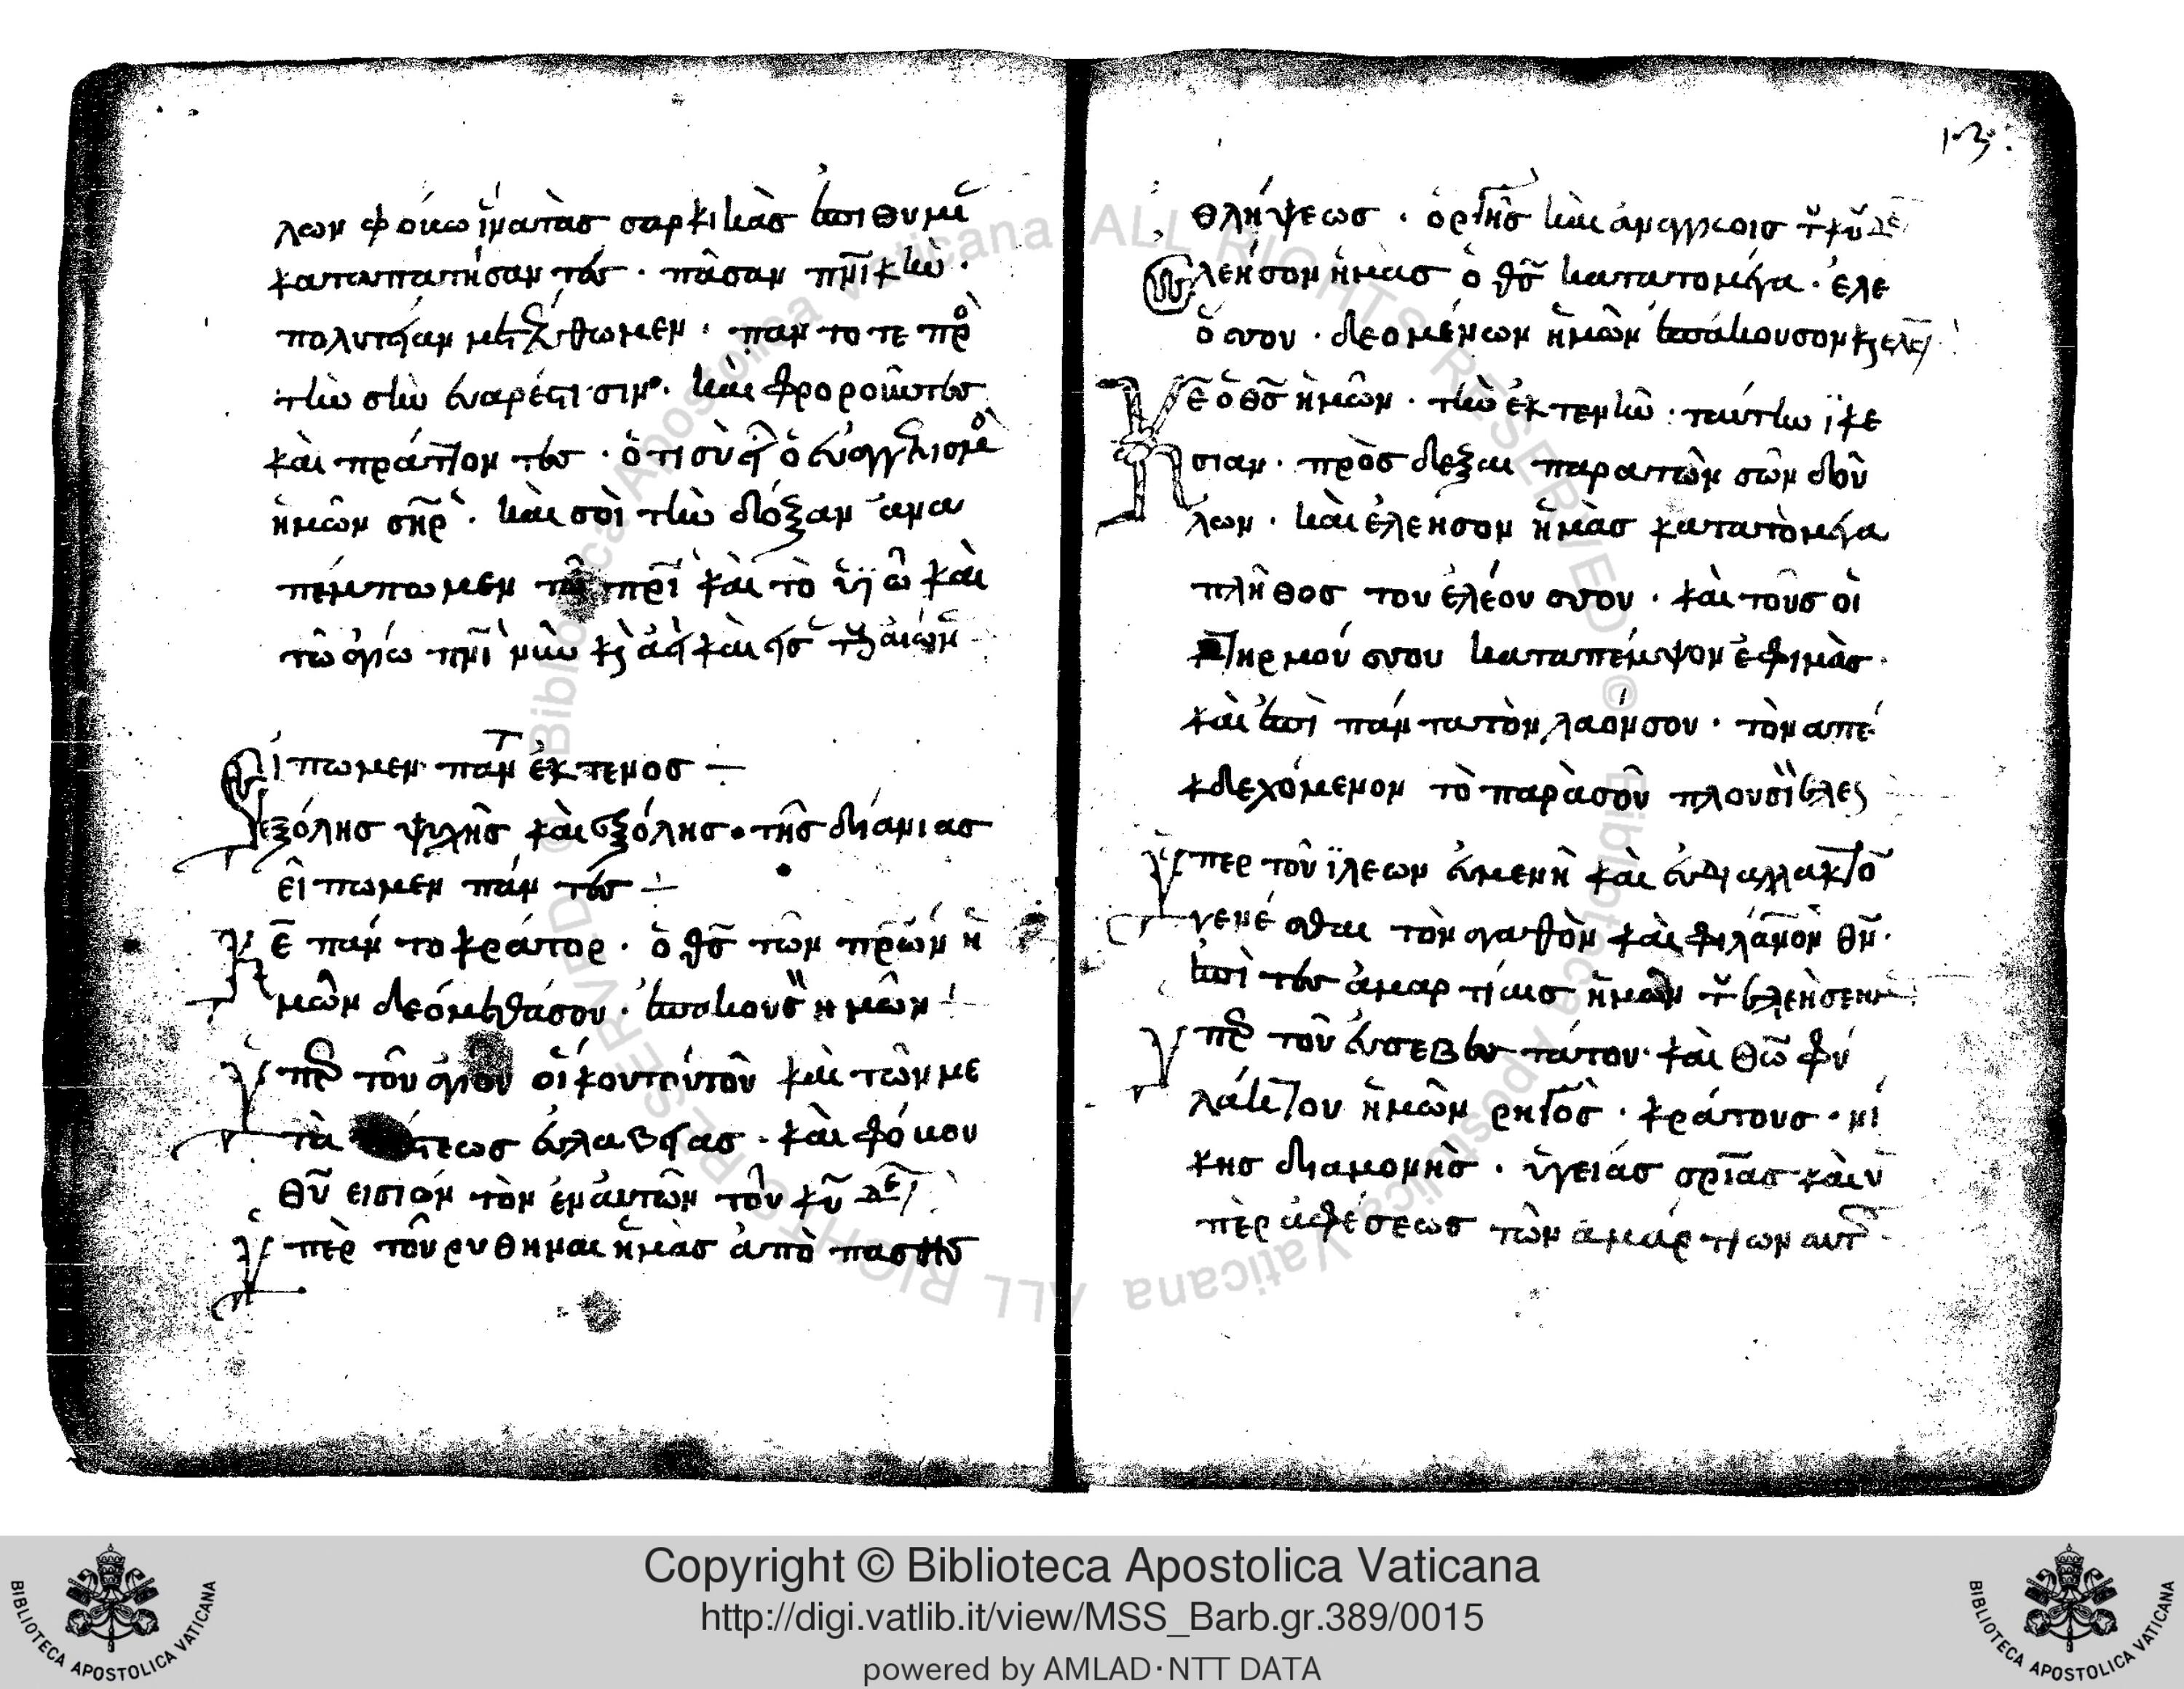 λων φόκω ἵνα τὰσ σαρκικὰσ ἐπιθυμί
καταπατήσαντεσ · πᾶσαν πνι̅κὴν ·
πολυτείαν μετέλθωμεν · πάντο τε πρ
τὴν σὴν ἐυαρέστισιν · καὶ φρορούντεσ
καὶ πράττοντεσ · ὅτι σὺ εἶ ὁ ἐυαγγελισμὸ
ἡμῶν σηρ̅ · καὶ σοὶ τὴν δόξαν ἀνα
πέμπωμεν τῶ πρι̅ καὶ τὸ ὑϊῶ καὶ
τῶ αγίω πνι̅ νῦν κ ἀεὶ καὶ εἰσ τ αἰών
Εἴπωμεν παντ ἐκτενοσ
ἐξόλησ ψυχῆσ καὶ ἐξόλησ · τῆσ διάνιασ
εἴπωμεν πάντεσ
Κε̅ παντοκράτορ · ὁ θσ̅ τῶν πρω̅ν ἡ
μῶν δεόμεθάσου · ἐπάκουσ ἡμῶν
Ὑπὲρ τοῦ αγίου οἴκου τούτου καὶ τῶν με
τὰ πίστεωσ ἐυλαβείασ · καὶ φόκου
θυ̅ εισιόντον ἐν αὐτῶ τοῦ κυ̅ δε
Ὑπὲρ τοῦ ρυθῆναι ἡμὰσ ἀπὸ πασησ
13
θλήψεωσ · ὀργῆσ καὶ ἀναγκοισ τ κυ̅ δε
Ἐλεήσον ἡμᾶσ ὁ θσ̅ κατα το μέγα · ἔλε
ὅσ σου · δεομένων ἡμῶν ἐπάκουσον κ ελε
Κε̅ ὁ θσ̅ ἡμῶν · τὴν ἐκτενὴν · ταύτην ϊκε
σιαν · πρὸσ δεξαι παρα τῶν σῶν δού
λων · καὶ ἐλεησον ἡμὰσ κατα τὸ μέγα
πλῆθοσ του ἐλέου σου · καὶ τοῦσ οἰ
κτηρμού σου καταπέμψον ἐφιμὰσ ·
καὶ ἐπὶ πάντα τὸν λαόν σου · τὸν απε
κδεχόμενον τὸ παρὰ σοῦ πλουσϊ ἐλε
Ὑπερ τοῦ ϊλεων ἐυμενὴ καὶ ἐυδιαλλακτο
γενέσθαι τὸν αγαθὸν καὶ φιλάνον θν̅ ·
ἐπὶ τεσ ἁμαρτίαισ ἡμῶν τ ἐλεὴσεν
Ὑπερ τοῦ ἐυσεβεστάτου καὶ θω̅ φυ
λάκτου ἡμῶν ρηγὸσ · κράτουσ · νί
κησ διαμονὴσ · ὑγειάσ σριασ καὶ ὑ
πὲρ ἀφέσεωσ τῶν ἁμάρτιων αυτ
Copyright © Biblioteca Apostolica Vaticana
http://digi.vatlib.it/view/MSS_Barb.gr.389/0015
powered by AMLAD·NTT DATA
BIBLIOTECA APOSTOLICA VATICANA
BIBLIOTECA APOSTOLICA VATICANA